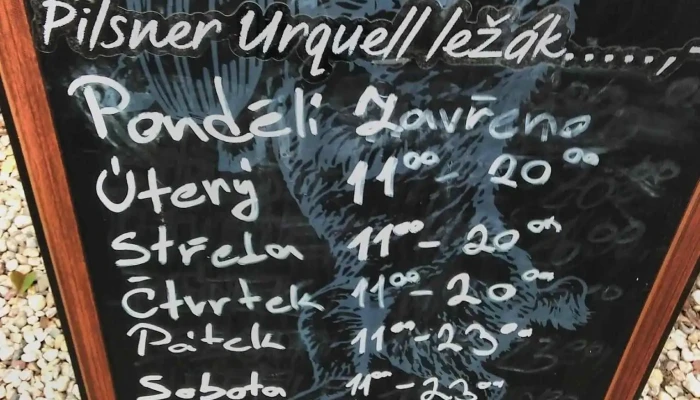 Pilsner Urquell ležák.....,-
Pondělí Zavřeno
Úterý 11⁰⁰ - 20⁰⁰
Středa 11⁰⁰ - 20⁰⁰
Čtvrtek 11⁰⁰ - 20⁰⁰
Pátek 11⁰⁰ - 23⁰⁰
Sobota 11⁰⁰ - 23⁰⁰